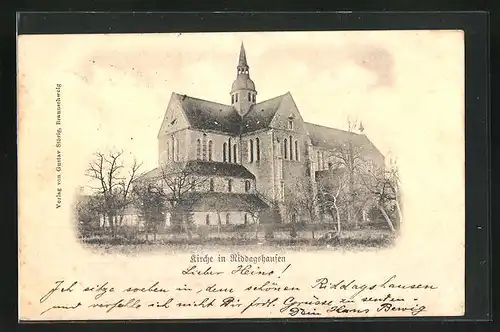 Verlag von Gustav Störig, Braunschweig
Kirche in Riddagshausen
Lieber Heino!
Ich sitze soeben in dem schönen Riddagshausen
und verfehle nicht Dir Grüsse zu senden.
Dein Hans Bewig